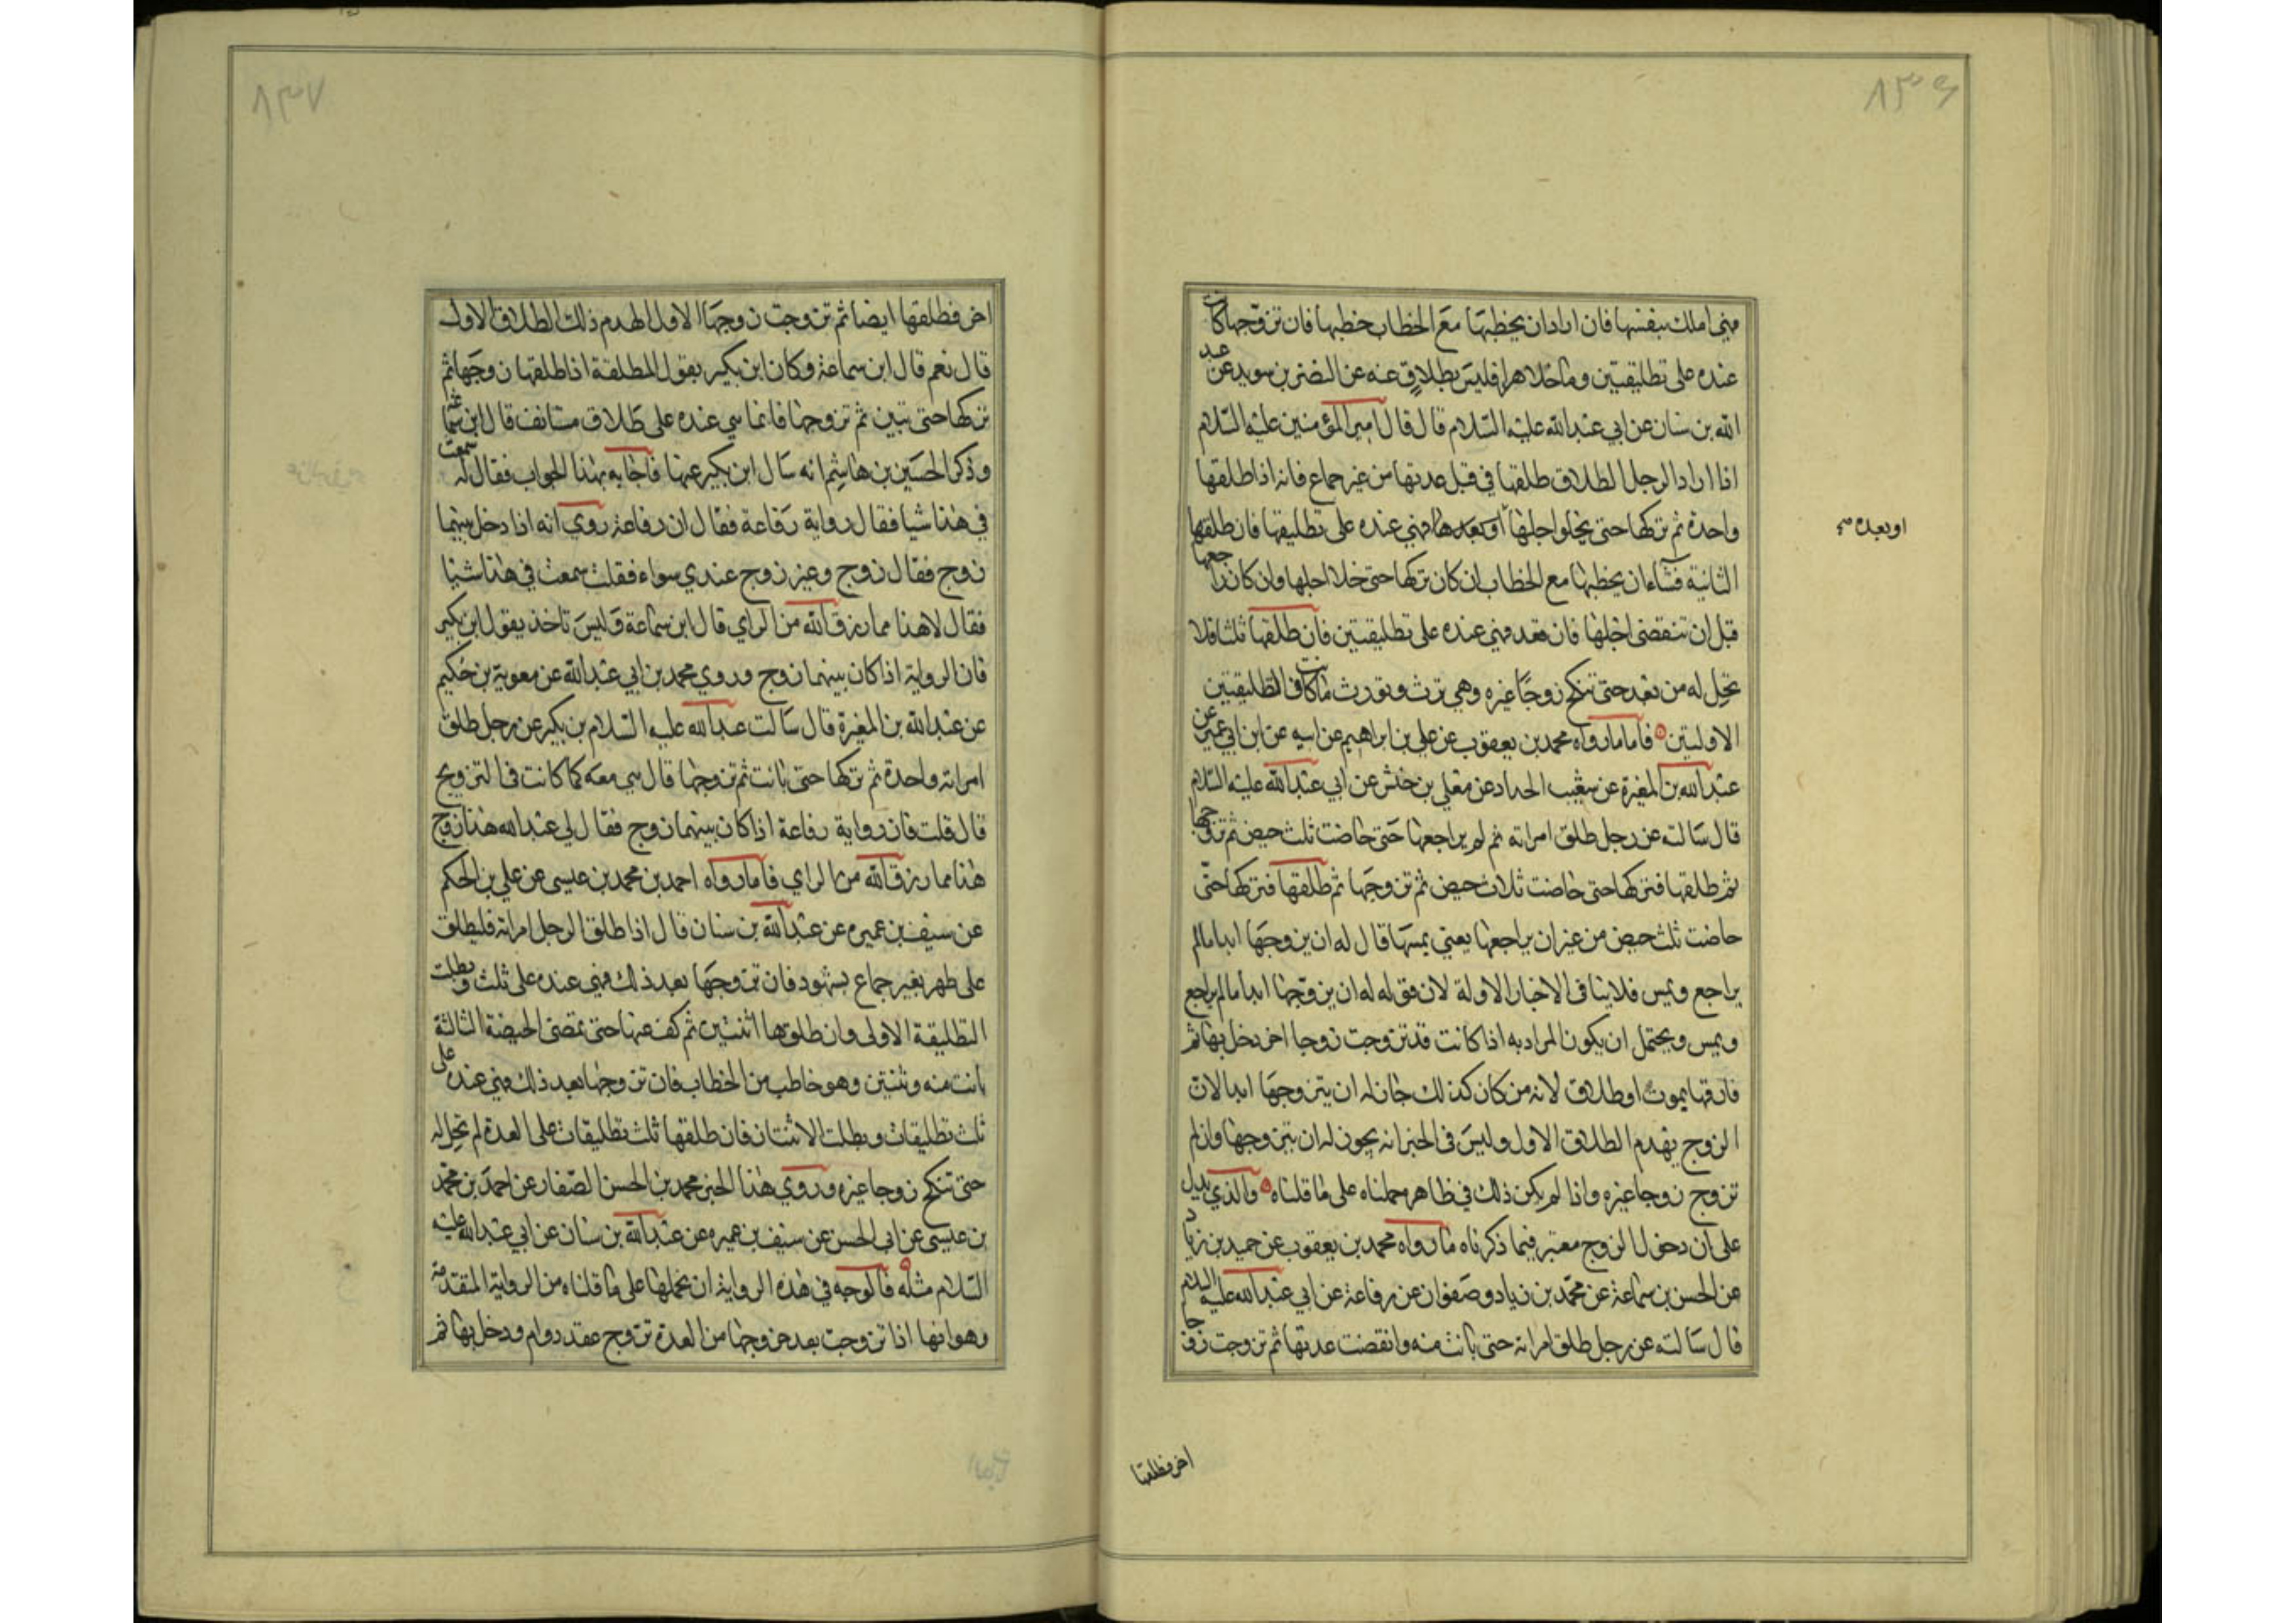 ٨٣٦
فهي املك بنفسها فان اراد ان يخطبها مع الخطاب خطبها فان تزوجها كانت
عنده على تطليقتين وما خلا هذا فليس بطلاق عنه عن النضر بن سويد عن عبد
الله بن سنان عن ابي عبد الله عليه السلام قال قال امير المؤمنين عليه السلام
اذا اراد الرجل الطلاق طلقها في قبل عدتها من غير جماع فانه اذا طلقها
واحدة ثم تركها حتى يخلوا اجلها او بعدها فهي عنده على تطليقها فان طلقها
او بعده
الثانية فشاء ان يخطبها مع الخطاب ان كان تركها حتى خلا اجلها وان كان راجعها
قبل ان تنقضي اجلها فان فقد فهي عنده على تطليقتين فان طلقها ثلثا فلا
تحل له من بعد حتى تنكح زوجا غيره وهي ترث وتورث ما كانت في التطليقتين
الاوليتين فاما ما رواه محمد بن يعقوب عن علي بن ابراهيم عن ابيه عن ابن ابي عمير عن
عبد الله بن المغيرة عن شعيب الحداد عن معلى بن خنيس عن ابي عبد الله عليه السلام
قال سالته عن رجل طلق امراته ثم لم يراجعها حتى حاضت ثلث حيض ثم تزوجها
ثم طلقها فتركها حتى حاضت ثلاث حيض ثم تزوجها ثم طلقها فتركها حتى
حاضت ثلث حيض من غير ان يراجعها يعني يمسها قال له ان يزوجها ابدا ما لم
يراجع ويمس فلا ينا في الاخبار الاولة لان قوله له ان يزوجها ابدا ما لم يراجع
ويمس ويحتمل ان يكون المراد به اذا كانت قد تزوجت زوجا اخر دخل بها ثم
فارقها بموت او طلاق لانه من كان كذلك جاز له ان يتزوجها ابدا لان
الزوج يهدم الطلاق الاول وليس في الخبر انه يجوز له ان يتزوجها وان لم
تزوج زوجا غيره واذا لم يكن ذلك في ظاهره حملناه على ما قلناه والذي يدل
على ان دخول الزوج معتبر فيما ذكرناه ما رواه محمد بن يعقوب عن حميد بن زياد
عن الحسن بن سماعة عن محمد بن زياد وصفوان عن رفاعة عن ابي عبد الله عليه السلام
قال سالته عن رجل طلق امراته حتى بانت منه وانقضت عدتها ثم تزوجت زوجا
اخر فطلقها
٨٣٧
اخر فطلقها ايضا ثم تزوجت زوجها الاول ايهدم ذلك الطلاق الاول
قال نعم قال ابن سماعة وكان ابن بكير يقول المطلقة اذا طلقها زوجها ثم
تركها حتى تبين ثم تزوجها فانما هي عنده على طلاق مستانف قال ابن سماعة
وذكر الحسين بن هاشم انه سال ابن بكير عنها فاجابه بهذا الجواب فقال له سمعت
في هذا شيا فقال رواية رفاعة فقال ان رفاعة روى انه اذا دخل بينهما
زوج فقال زوج وغير زوج عندي سواء فقلت سمعت في هذا شيئا
فقال لا هذا مما رزق الله من الراي قال ابن سماعة وليس تاخذ بقول ابن بكير
فان الرواية اذا كان بينهما زوج وروي محمد بن ابي عبد الله عن معوية بن حكيم
عن عبد الله بن المغيرة قال سالت عبد الله عليه السلام بن بكير عن رجل طلق
امراته واحدة ثم تركها حتى بانت ثم تزوجها قال هي معه كما كانت في التزويج
قال قلت فان رواية رفاعة اذا كان بينهما زوج فقال لي عبد الله هذا زوج
هذا مما رزق الله من الراي فاما رواه احمد بن محمد بن عيسى عن علي بن الحكم
عن سيف بن عميره عن عبد الله بن سنان قال اذا طلق الرجل امراته فليطلق
على طهر بغير جماع بشهود فان تزوجها بعد ذلك فهي عنده على ثلث وبطلت
التطليقة الاولى وان طلقها اثنتين ثم كف عنها حتى تمضى الحيضة الثالثة
بانت منه وثنتين وهو خاطب من الخطاب فان تزوجها بعد ذلك فهي عنده على
ثلث تطليقات وبطلت الاثنتان فان طلقها ثلث تطليقات على العدة لم تحل له
حتى تنكح زوجا غيره وروي هذا الخبر محمد بن الحسن الصفار عن احمد بن محمد
بن عيسى عن ابي الحسن عن سيف بن عميره عن عبد الله بن سنان عن ابي عبد الله عليه
السلام مثله فالوجه في هذه الرواية ان نحملها على ما قلناه من الرواية المتقدمة
وهو انها اذا تزوجت بعد خروجها من العدة تزوج عقد دوام ودخل بها ثم